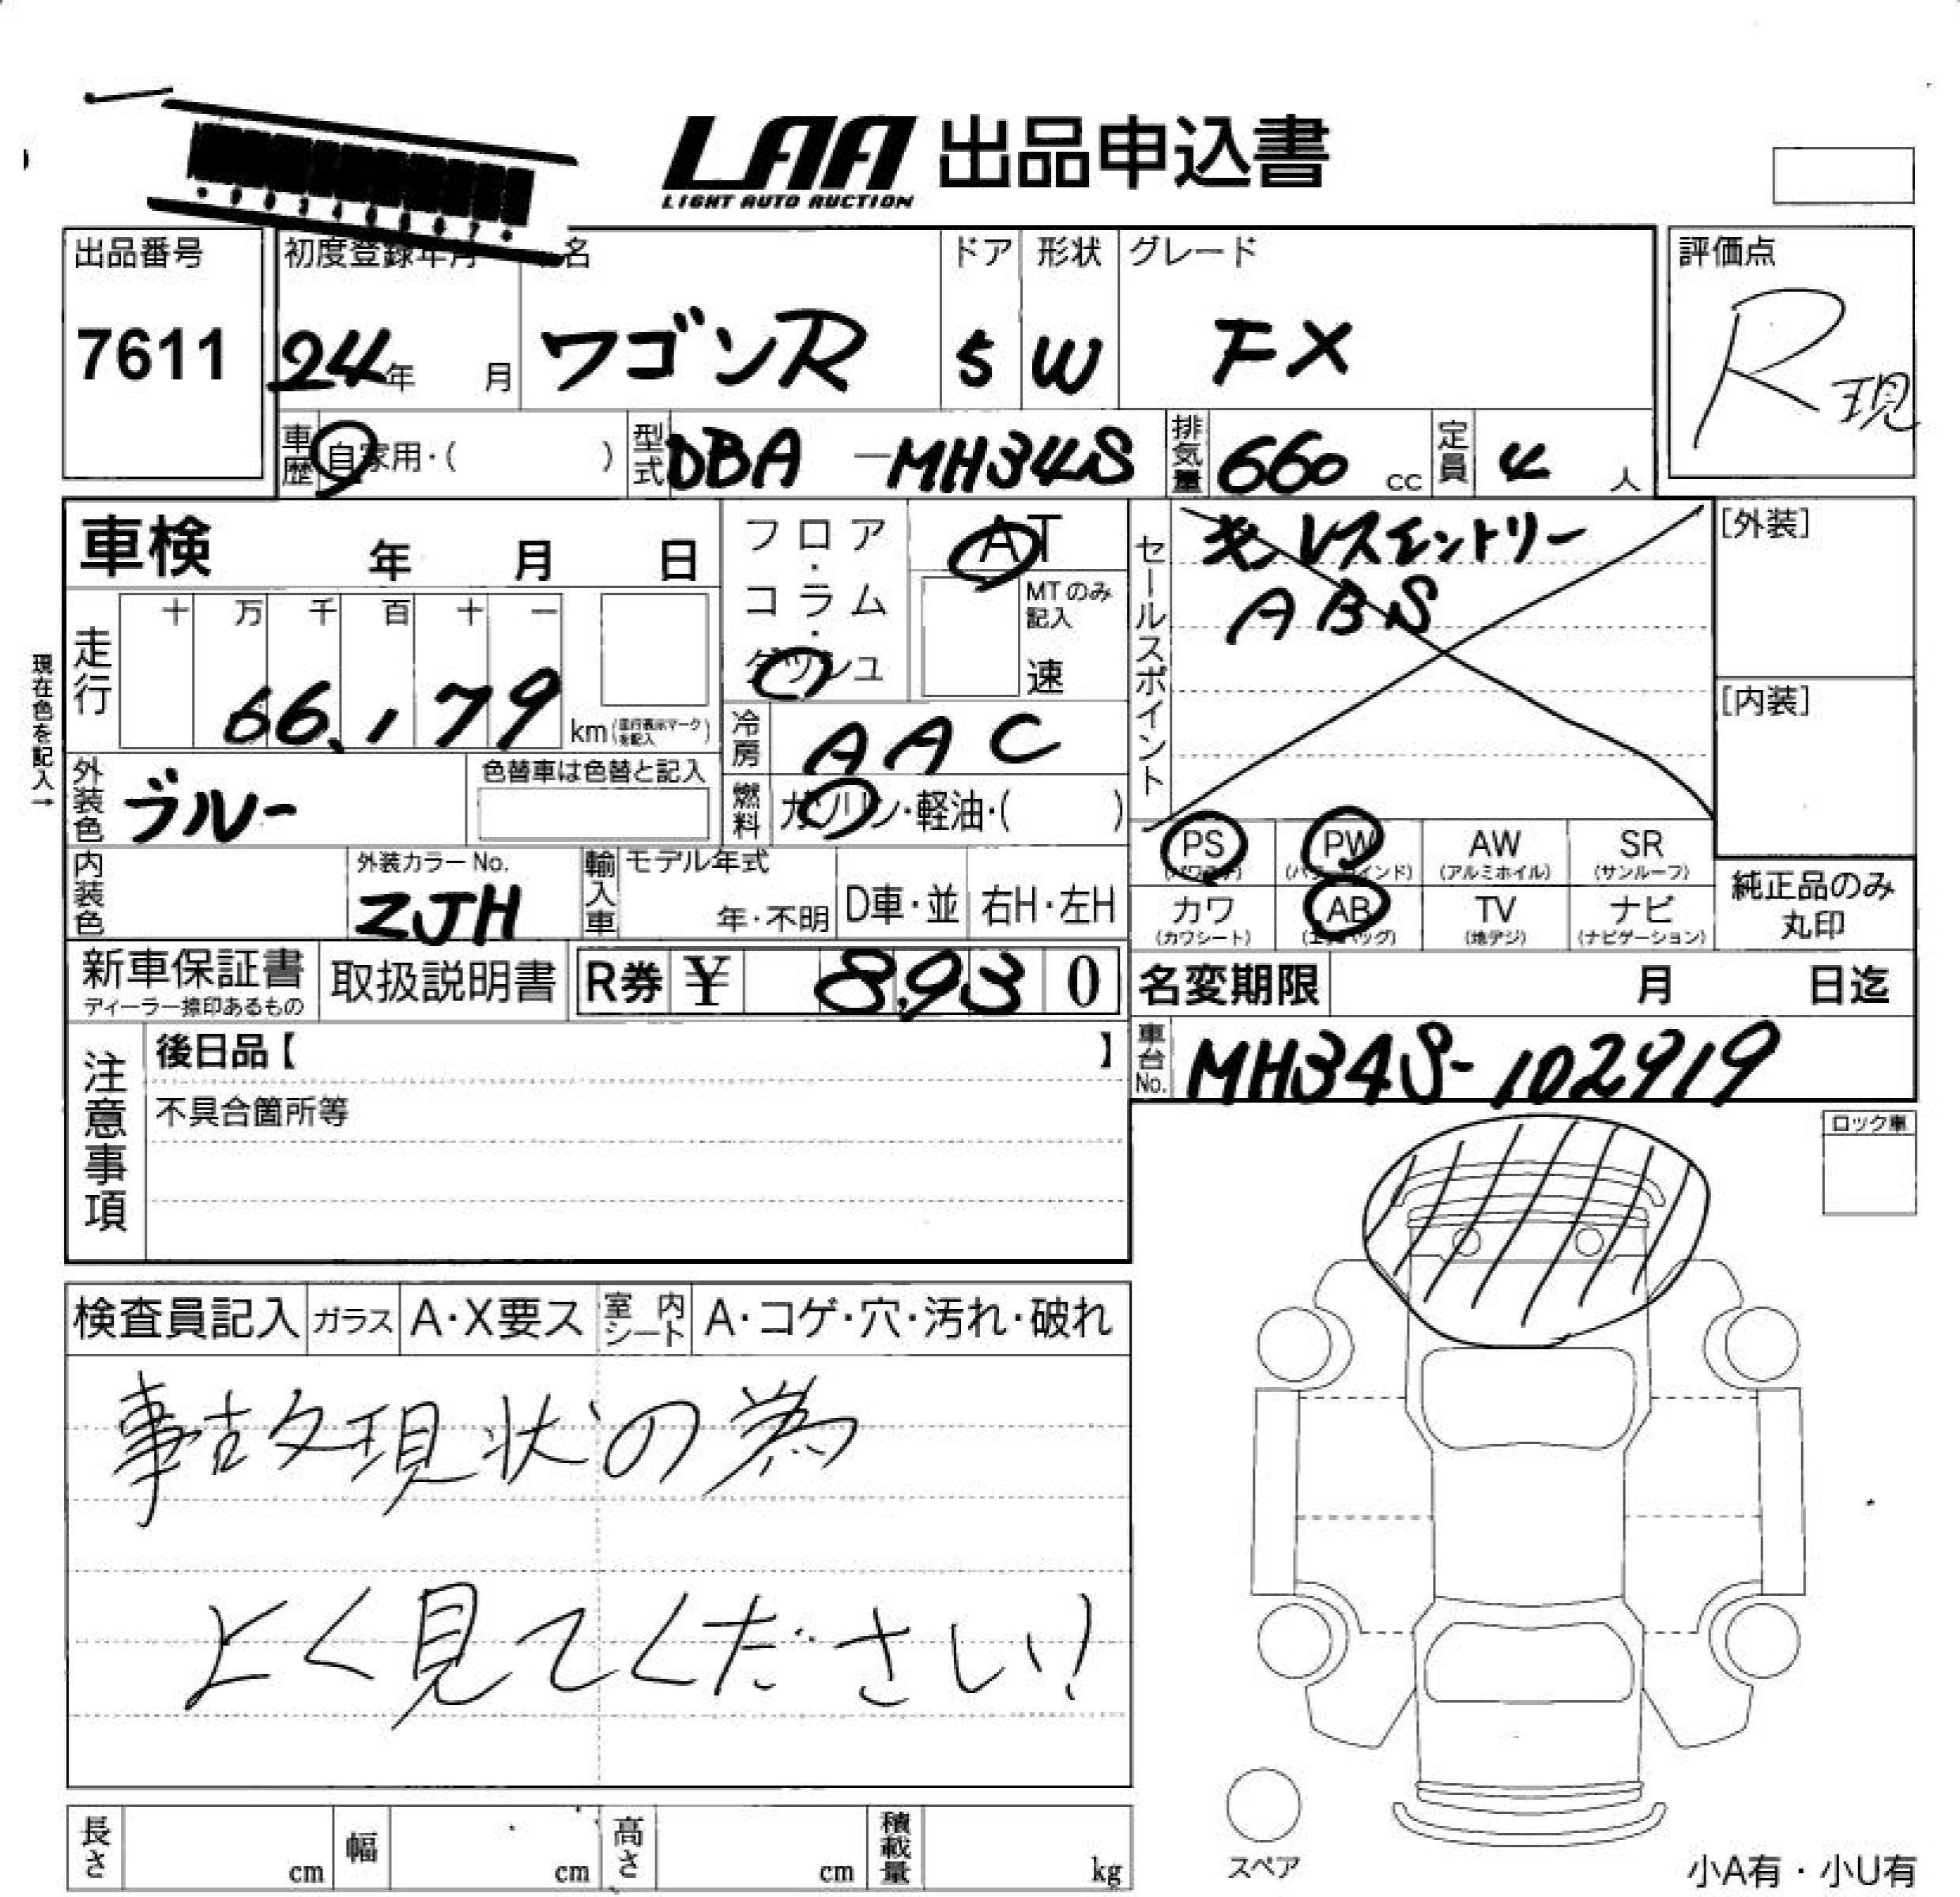 LAA 出品申込書
LIGHT AUTO AUCTION
出品番号 初度登録年月 名 ドア 形状 グレード 評価点
7611 24年 月 ワゴンR 5 W FX R現
車歴 自家用・( ) 型式 DBA-MH34S 排気量 660 cc 定員 4 人
車検 年 月 日
フロア・コラム・ダッシュ
AT
MTのみ記入
速
セールスポイント
キーレスエントリー
ABS
[外装]
[内装]
現在色を記入→
走行 十 万 千 百 十 一
66,179 km (走行表示マークを記入)
冷房 AAC
外装色 ブルー 色替車は色替と記入
燃料 ガソリン・軽油・( )
PS (パワステ) PW (パワーウインド) AW (アルミホイル) SR (サンルーフ)
カワ (カワシート) AB (エアバッグ) TV (地デジ) ナビ (ナビゲーション)
純正品のみ丸印
内装色 外装カラーNo. ZJH 輸入車 モデル年式 年・不明 D車・並 右H・左H
新車保証書 ディーラー捺印あるもの 取扱説明書 R券 ¥ 8,930
名変期限 月 日迄
車台No. MH34S-102919
注意事項
後日品【 】
不具合箇所等
ロック車
検査員記入 ガラス A・X要ス 室内シート A・コゲ・穴・汚れ・破れ
事故現状の為
よく見てください!
長さ cm 幅 cm 高さ cm 積載量 kg
スペア
小A有・小U有